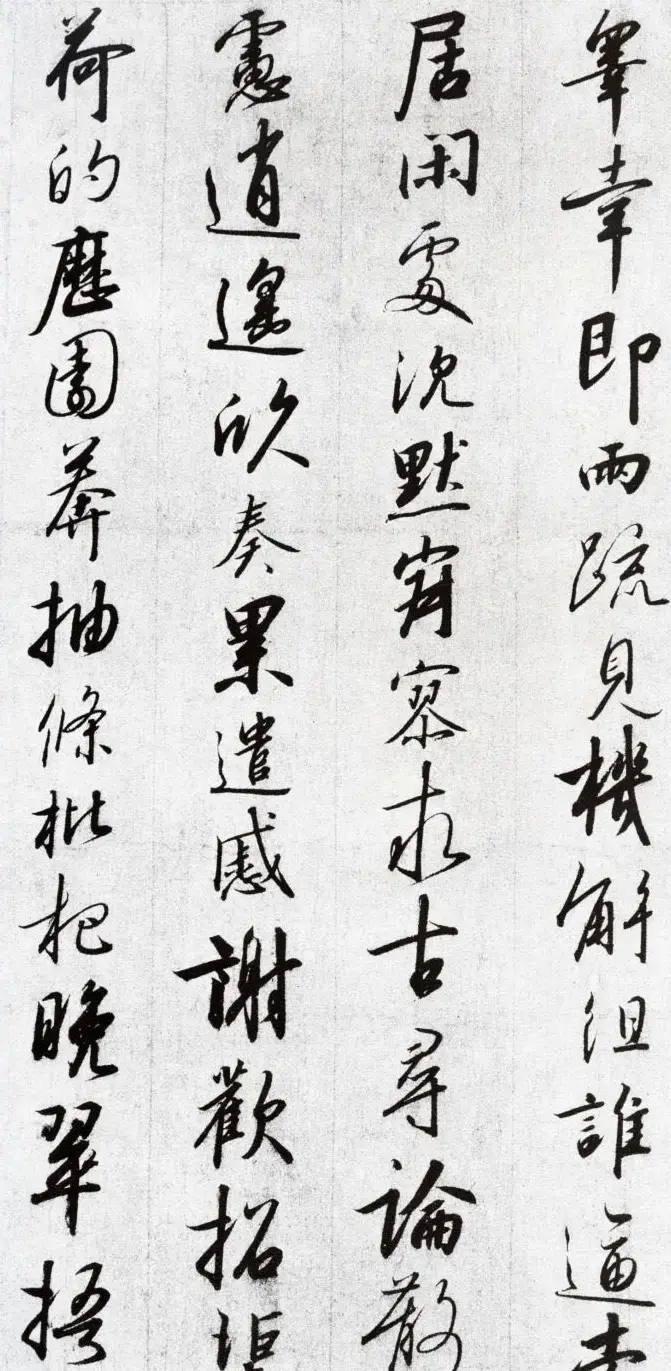 皋幸即兩疏見機解組誰逼索
居閑處沉默寂寥求古尋論散
慮逍遙欣奏累遣慼謝歡招渠
荷的歷園莽抽條枇杷晚翠梧